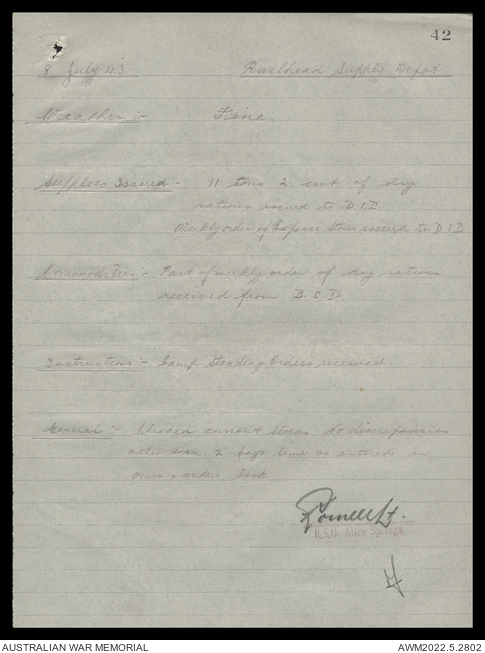 42
8 July 43 Railhead Supply Depot
Weather :- Fine.
Supplies Issued :- 11 tons 2 cwt of dry
rations issued to D.I.D.
Weekly order of Stores issued to D.I.D
Commodities :- Part of weekly order of dry rations
received from B.S.D.
Instructions :- Camp Standing Orders received
General :- Checked current stocks No discrepancies
2 bags lime as entered in
overs & unders book
Lt.
R.S.O. Alice Springs
AUSTRALIAN WAR MEMORIAL AWM2022.5.2802